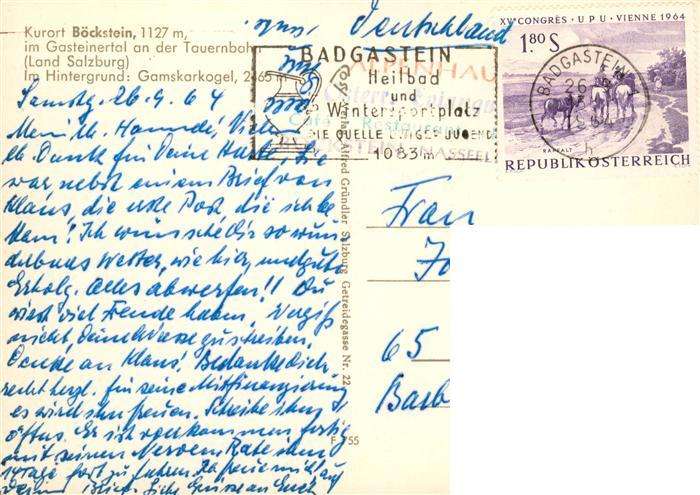 Kurort Böckstein, 1127 m,
im Gasteinertal an der Tauernbahn
(Land Salzburg)
Im Hintergrund: Gamskarkogel, 2465
Deutschland
BADGASTEIN
Heilbad
und
Wintersportplatz
DIE QUELLE EWIGER JUGEND
1083m
XV. CONGRÈS · U P U · VIENNE 1964
1.80 S
RANFALT
REPUBLIK ÖSTERREICH
BADGASTEIN 1
26
Samstg. 26.9.64
Dank für Deine Karte, die
war nebst einem Brief von
Klaus, die erste Post, die ich be-
kam! Ich wünsche Dir so wun-
derbares Wetter, wie hier und gute
Erholg. Alles abwerfen!! Du
wirst viel Freude haben. Vergiß
nicht, Deine Adresse zu schreiben.
Denke an Klaus! Bedanke Dich
recht herzl. für seine Mitfinanzierung
es wird ihn freuen. Schreibe ihm
öfters. Er ist vollkommen fertig
mit seinen Nerven. Rate ihm
14 Tage fort zu fahren. Ich freue mich auf
Grüsse an Euch
Verlag Alfred Gründler Salzburg Getreidegasse Nr. 22
F 755
Frau
65
Barb